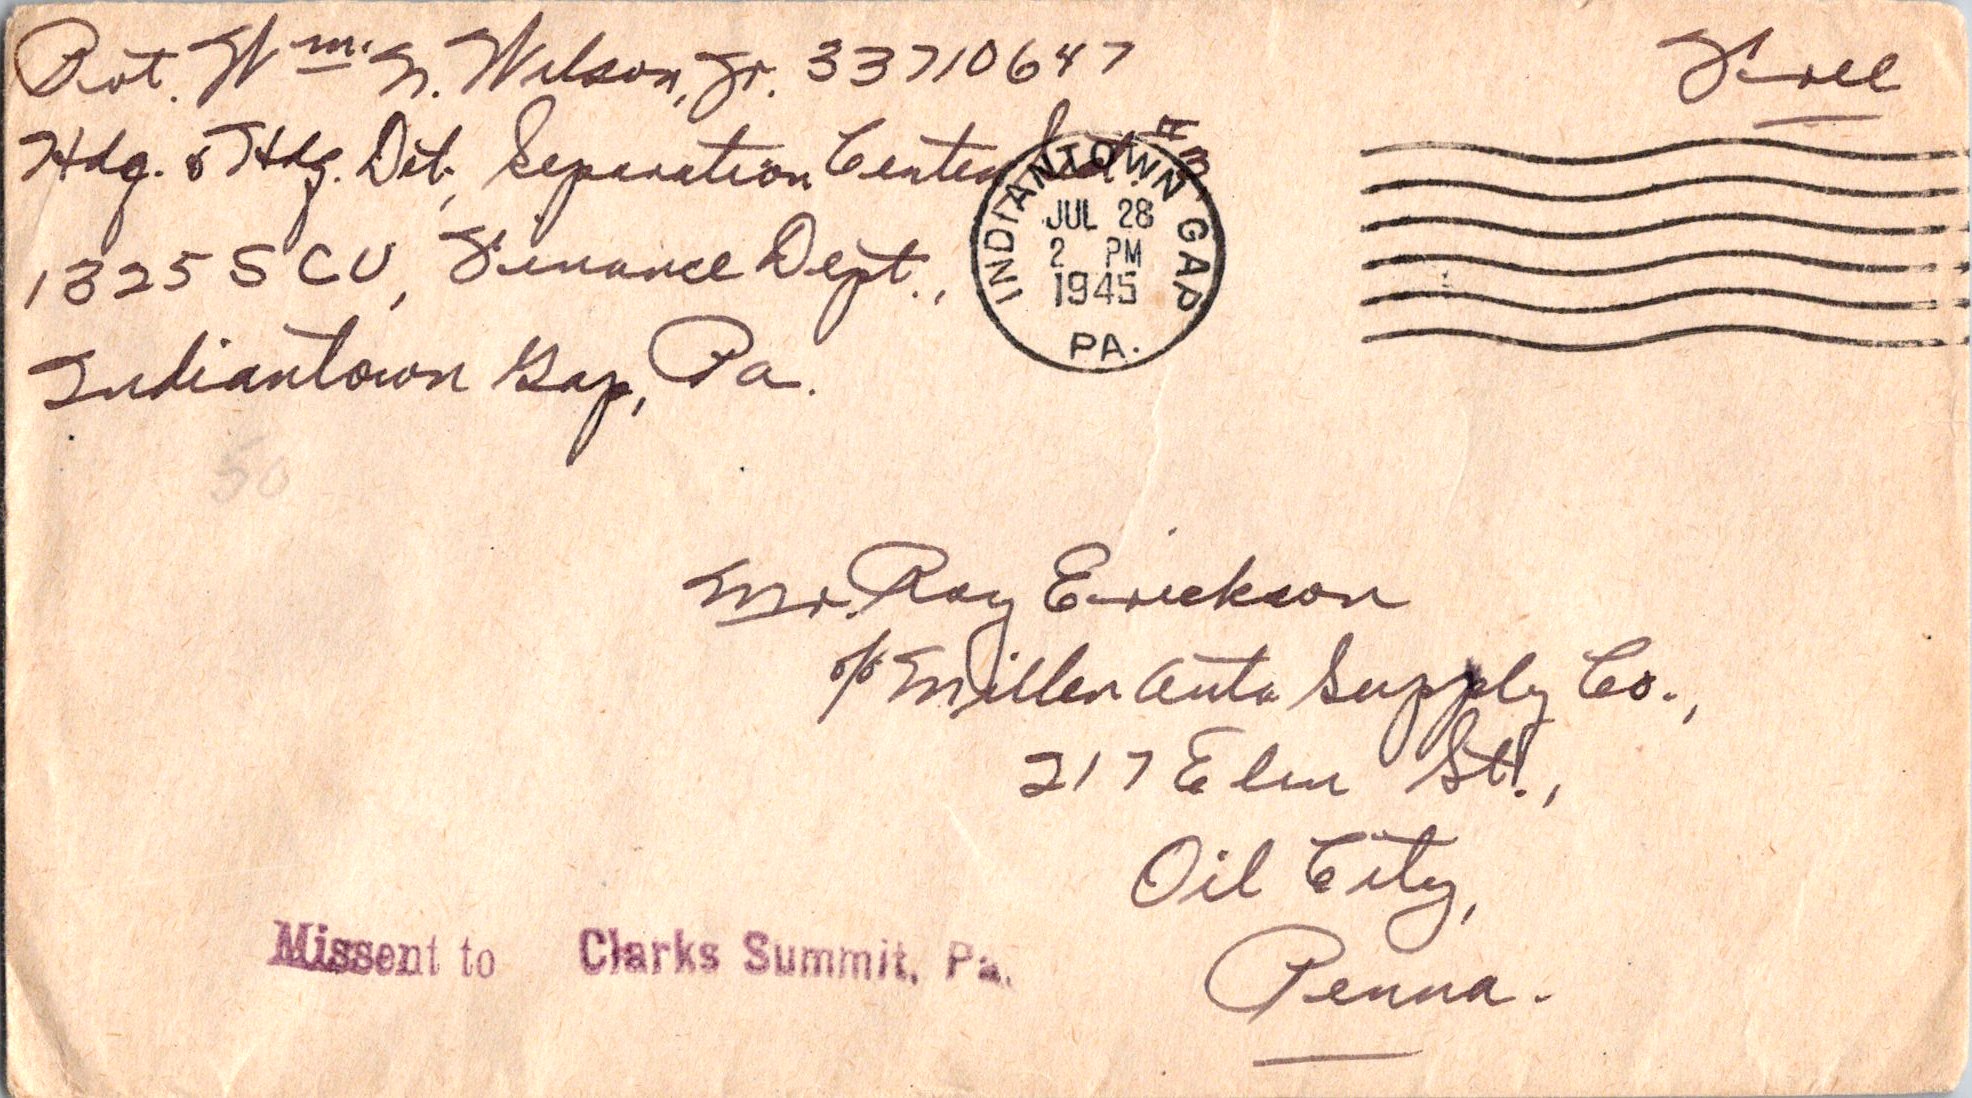 Pvt. Wm. N. Wilson, Jr. 33710647
Free
Hdq. & Hdq. Det., Separation Center
1325 SCU, Finance Dept.,
Indiantown Gap, Pa.
INDIANTOWN GAP
JUL 28
2 PM
1945
PA.
50
Mr. Roy Erickson
c/o Miller Auto Supply Co.,
217 Elm St.,
Oil City,
Penna.
Missent to Clarks Summit, Pa.